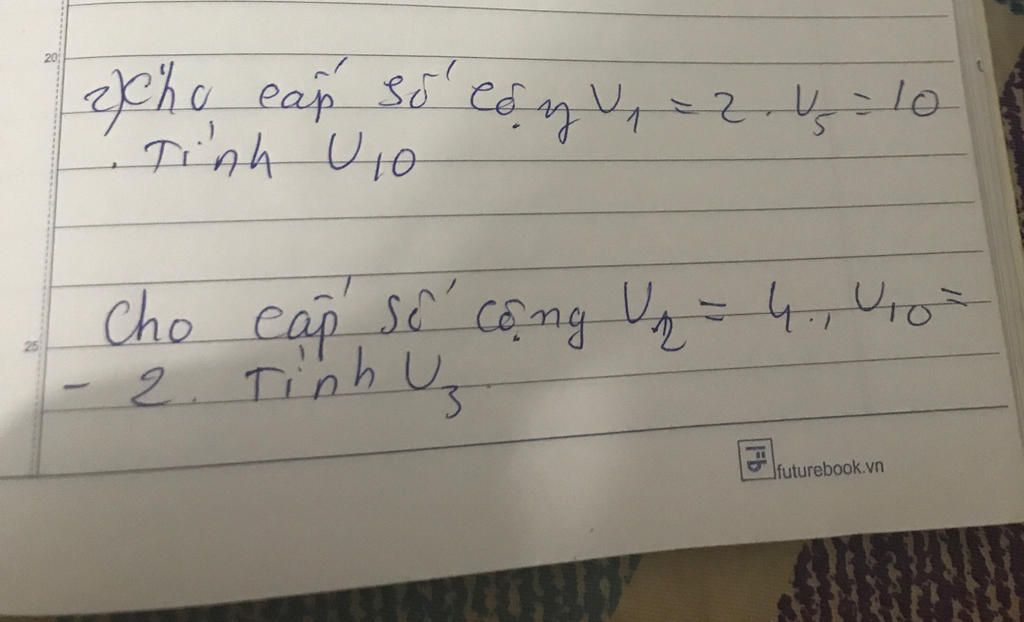 20
2) Cho cấp số cộng U₁ = 2. U₅ = 10
. Tính U₁₀
Cho cấp số cộng U₂ = 4., U₁₀ =
25
- 2. Tính U₃.
futurebook.vn